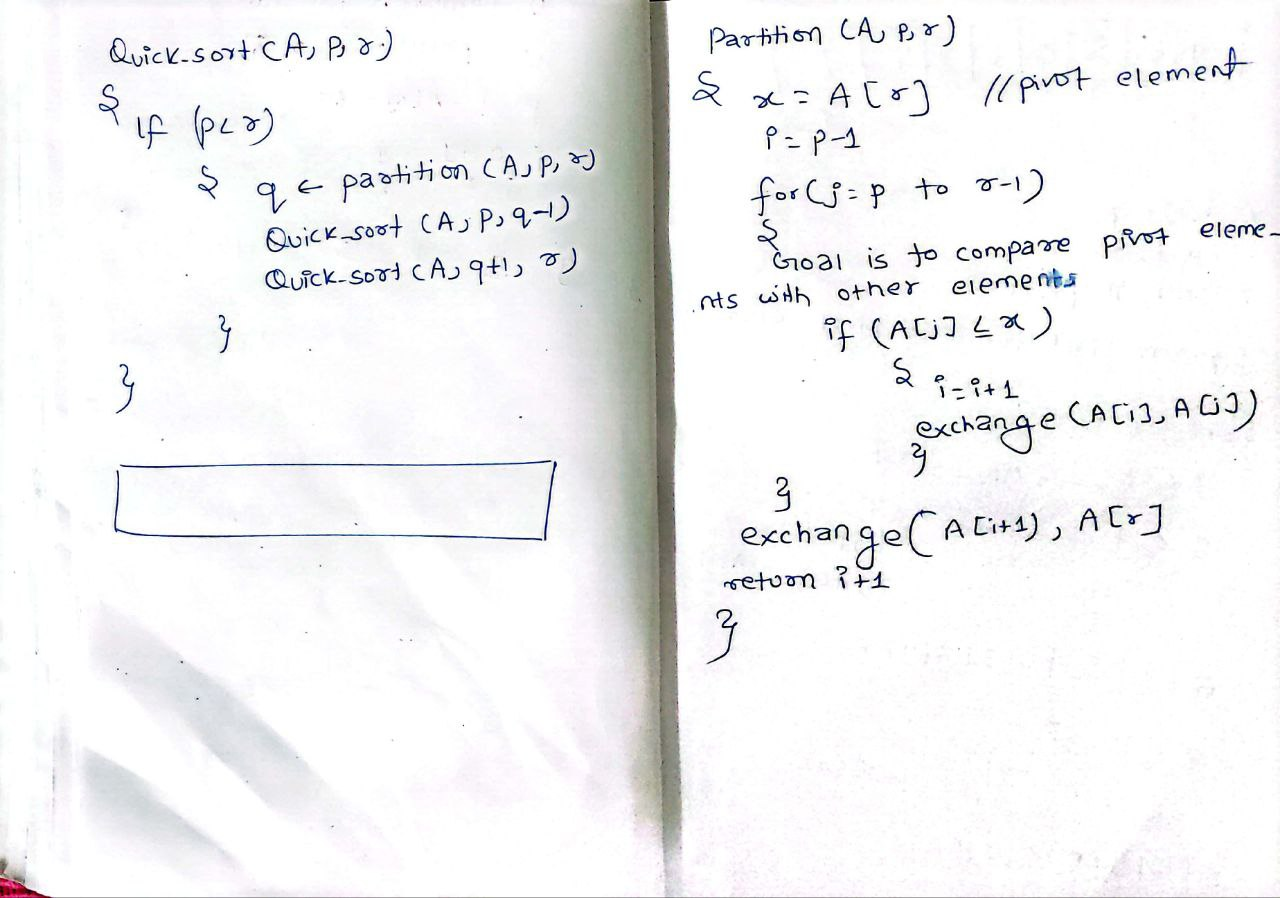 Quick-sort (A, p, r)
{
if (p<r)
{ q ← partition (A, p, r)
Quick-sort (A, p, q-1)
Quick-sort (A, q+1, r)
}
}
Partition (A, p, r)
{ x = A[r] // pivot element
i = p-1
for (j = p to r-1)
{
Goal is to compare pivot eleme-
nts with other elements
if (A[j] ≤ x)
{ i = i+1
exchange (A[i], A[j])
}
}
exchange (A[i+1), A[r]
return i+1
}